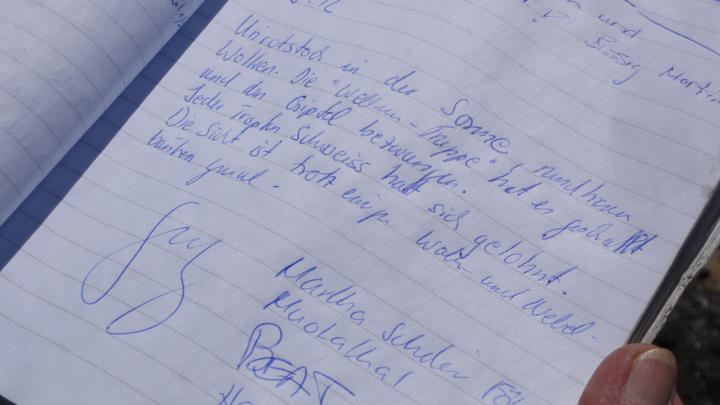 Urirotstock in der Sonne, rundherum
Wolken. Die " - Truppe" hat es geschafft
und den Gipfel bezwungen.
Jeder Tropfen Schweiss hat sich gelohnt.
Die Sicht ist trotz einiger Wolken und Nebel-
banken genial.
Martha Schuler
Muotathal
BEAT
und
Bissig Martin